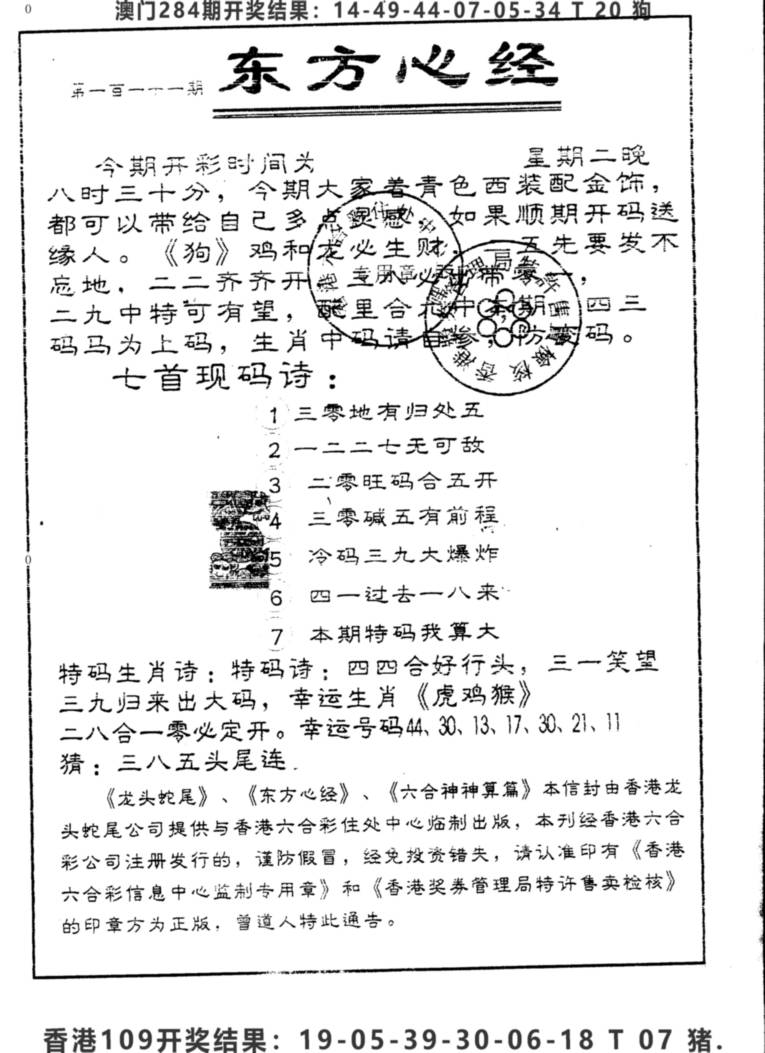 澳门284期开奖结果：14-49-44-07-05-34 T 20 狗
第一百一十一期 东方心经
今期开彩时间为 星期二晚
八时三十分，今期大家着青色西装配金饰，
都可以带给自己多点灵感，如果顺期开码送
缘人。《狗》鸡和龙必生财，五先要发不
忘地，二二齐齐开
二九中特可有望，里合 期 四三
码马为上码，生肖中码请自参，防 码。
七首现码诗：
1 三零地有归处五
2 一二二七无可敌
3 二零旺码合五开
4 三零碱五有前程
5 冷码三九大爆炸
6 四一过去一八来
7 本期特码我算大
特码生肖诗：特码诗：四四合好行头，三一笑望
三九归来出大码，幸运生肖《虎鸡猴》
二八合一零必定开。幸运号码44、30、13、17、30、21、11
猜：三八五头尾连.
《龙头蛇尾》、《东方心经》、《六合神神算篇》本信封由香港龙
头蛇尾公司提供与香港六合彩住处中心临制出版，本刊经香港六合
彩公司注册发行的，谨防假冒，经免投资错失，请认准印有《香港
六合彩信息中心监制专用章》和《香港奖券管理局特许售卖检核》
的印章方为正版，曾道人特此通告。
香港109开奖结果：19-05-39-30-06-18 T 07 猪.